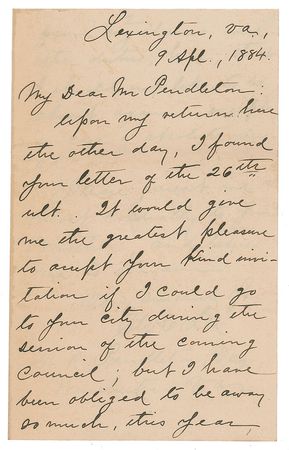 Lexington, Va.,
9 Apl., 1884.
My Dear Mr Pendleton:
Upon my return here
the other day, I found
your letter of the 26th
ult. It would give
me the greatest pleasure
to accept your kind invi-
tation if I could go
to your city during the
session of the coming
Council; but I have
been obliged to be away
so much, this year,